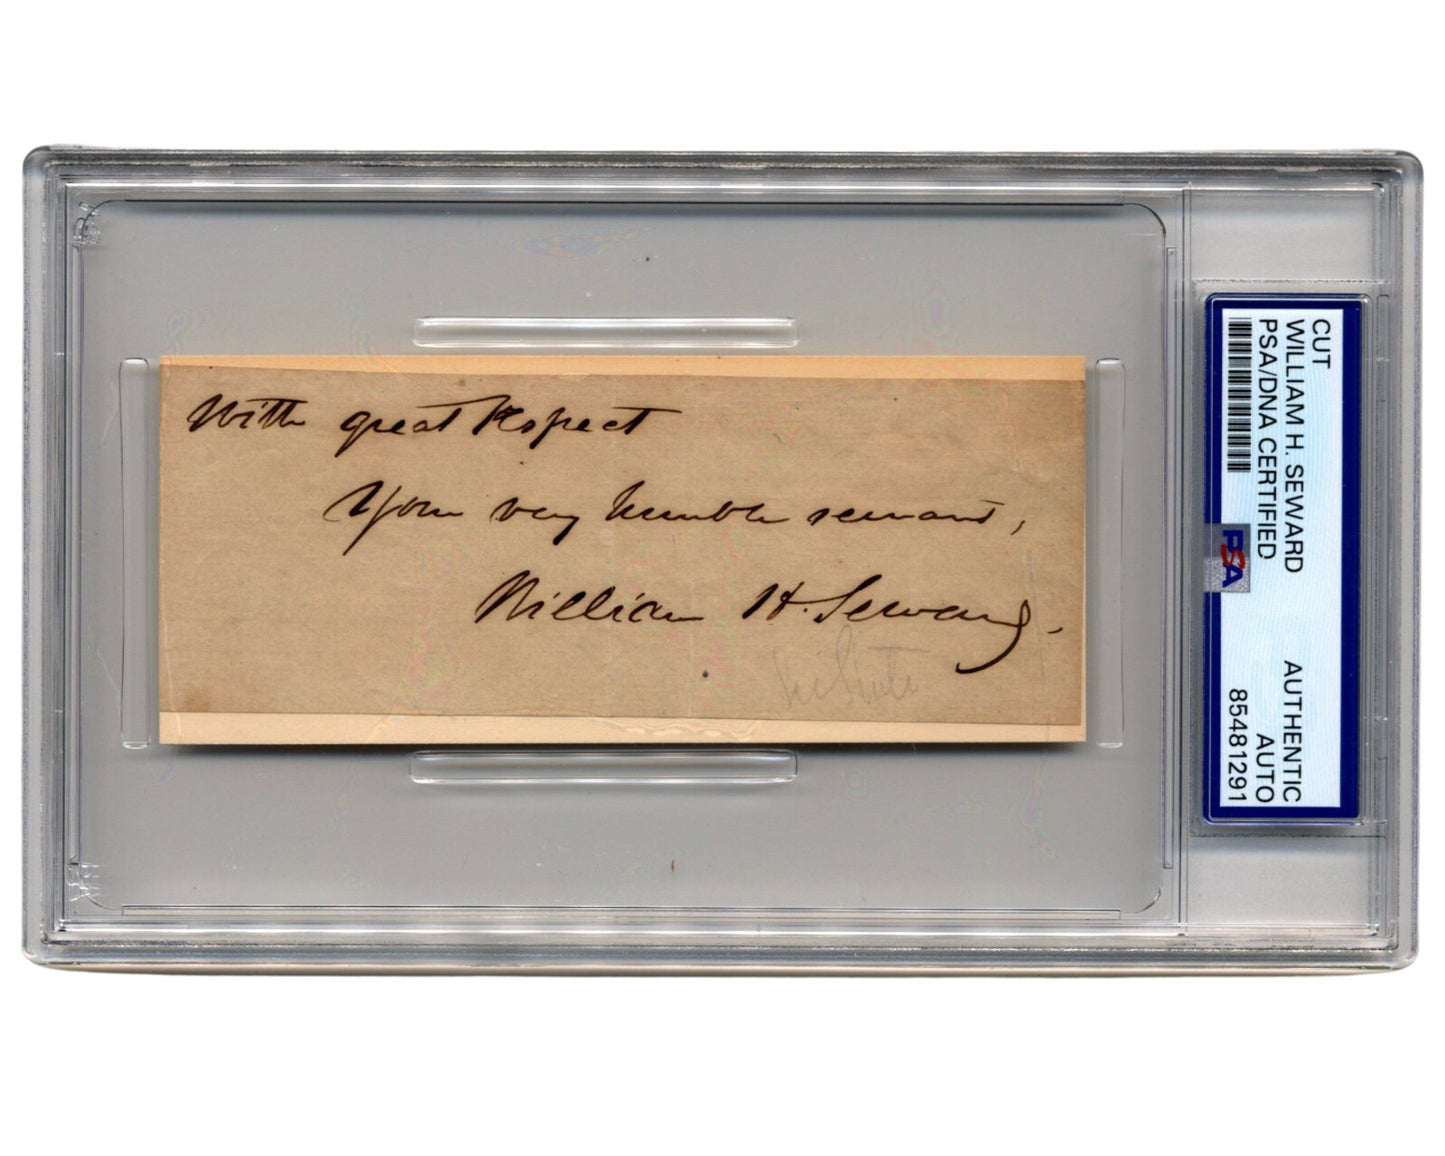 With great Respect
Your very humble servant,
William H. Seward.
CUT
WILLIAM H. SEWARD
PSA/DNA CERTIFIED
AUTHENTIC
AUTO
85481291
PSA